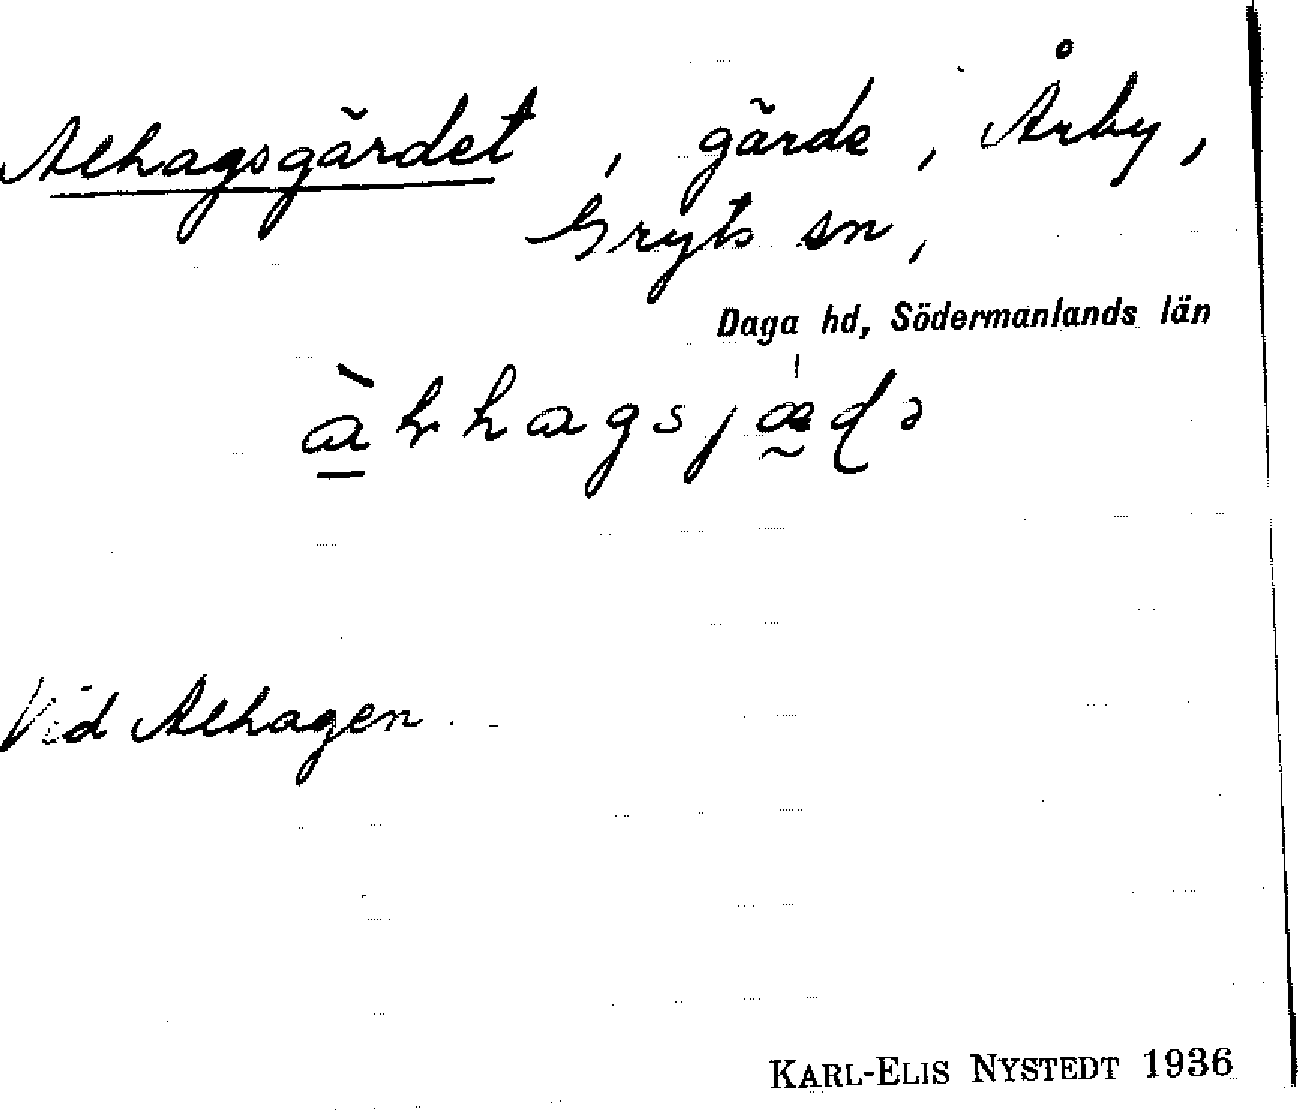 Alhagsgärdet, gärde, Årby,
Gryts sn,
Daga hd, Södermanlands län
Vid Alhagen.
KARL-ELIS NYSTEDT 1936